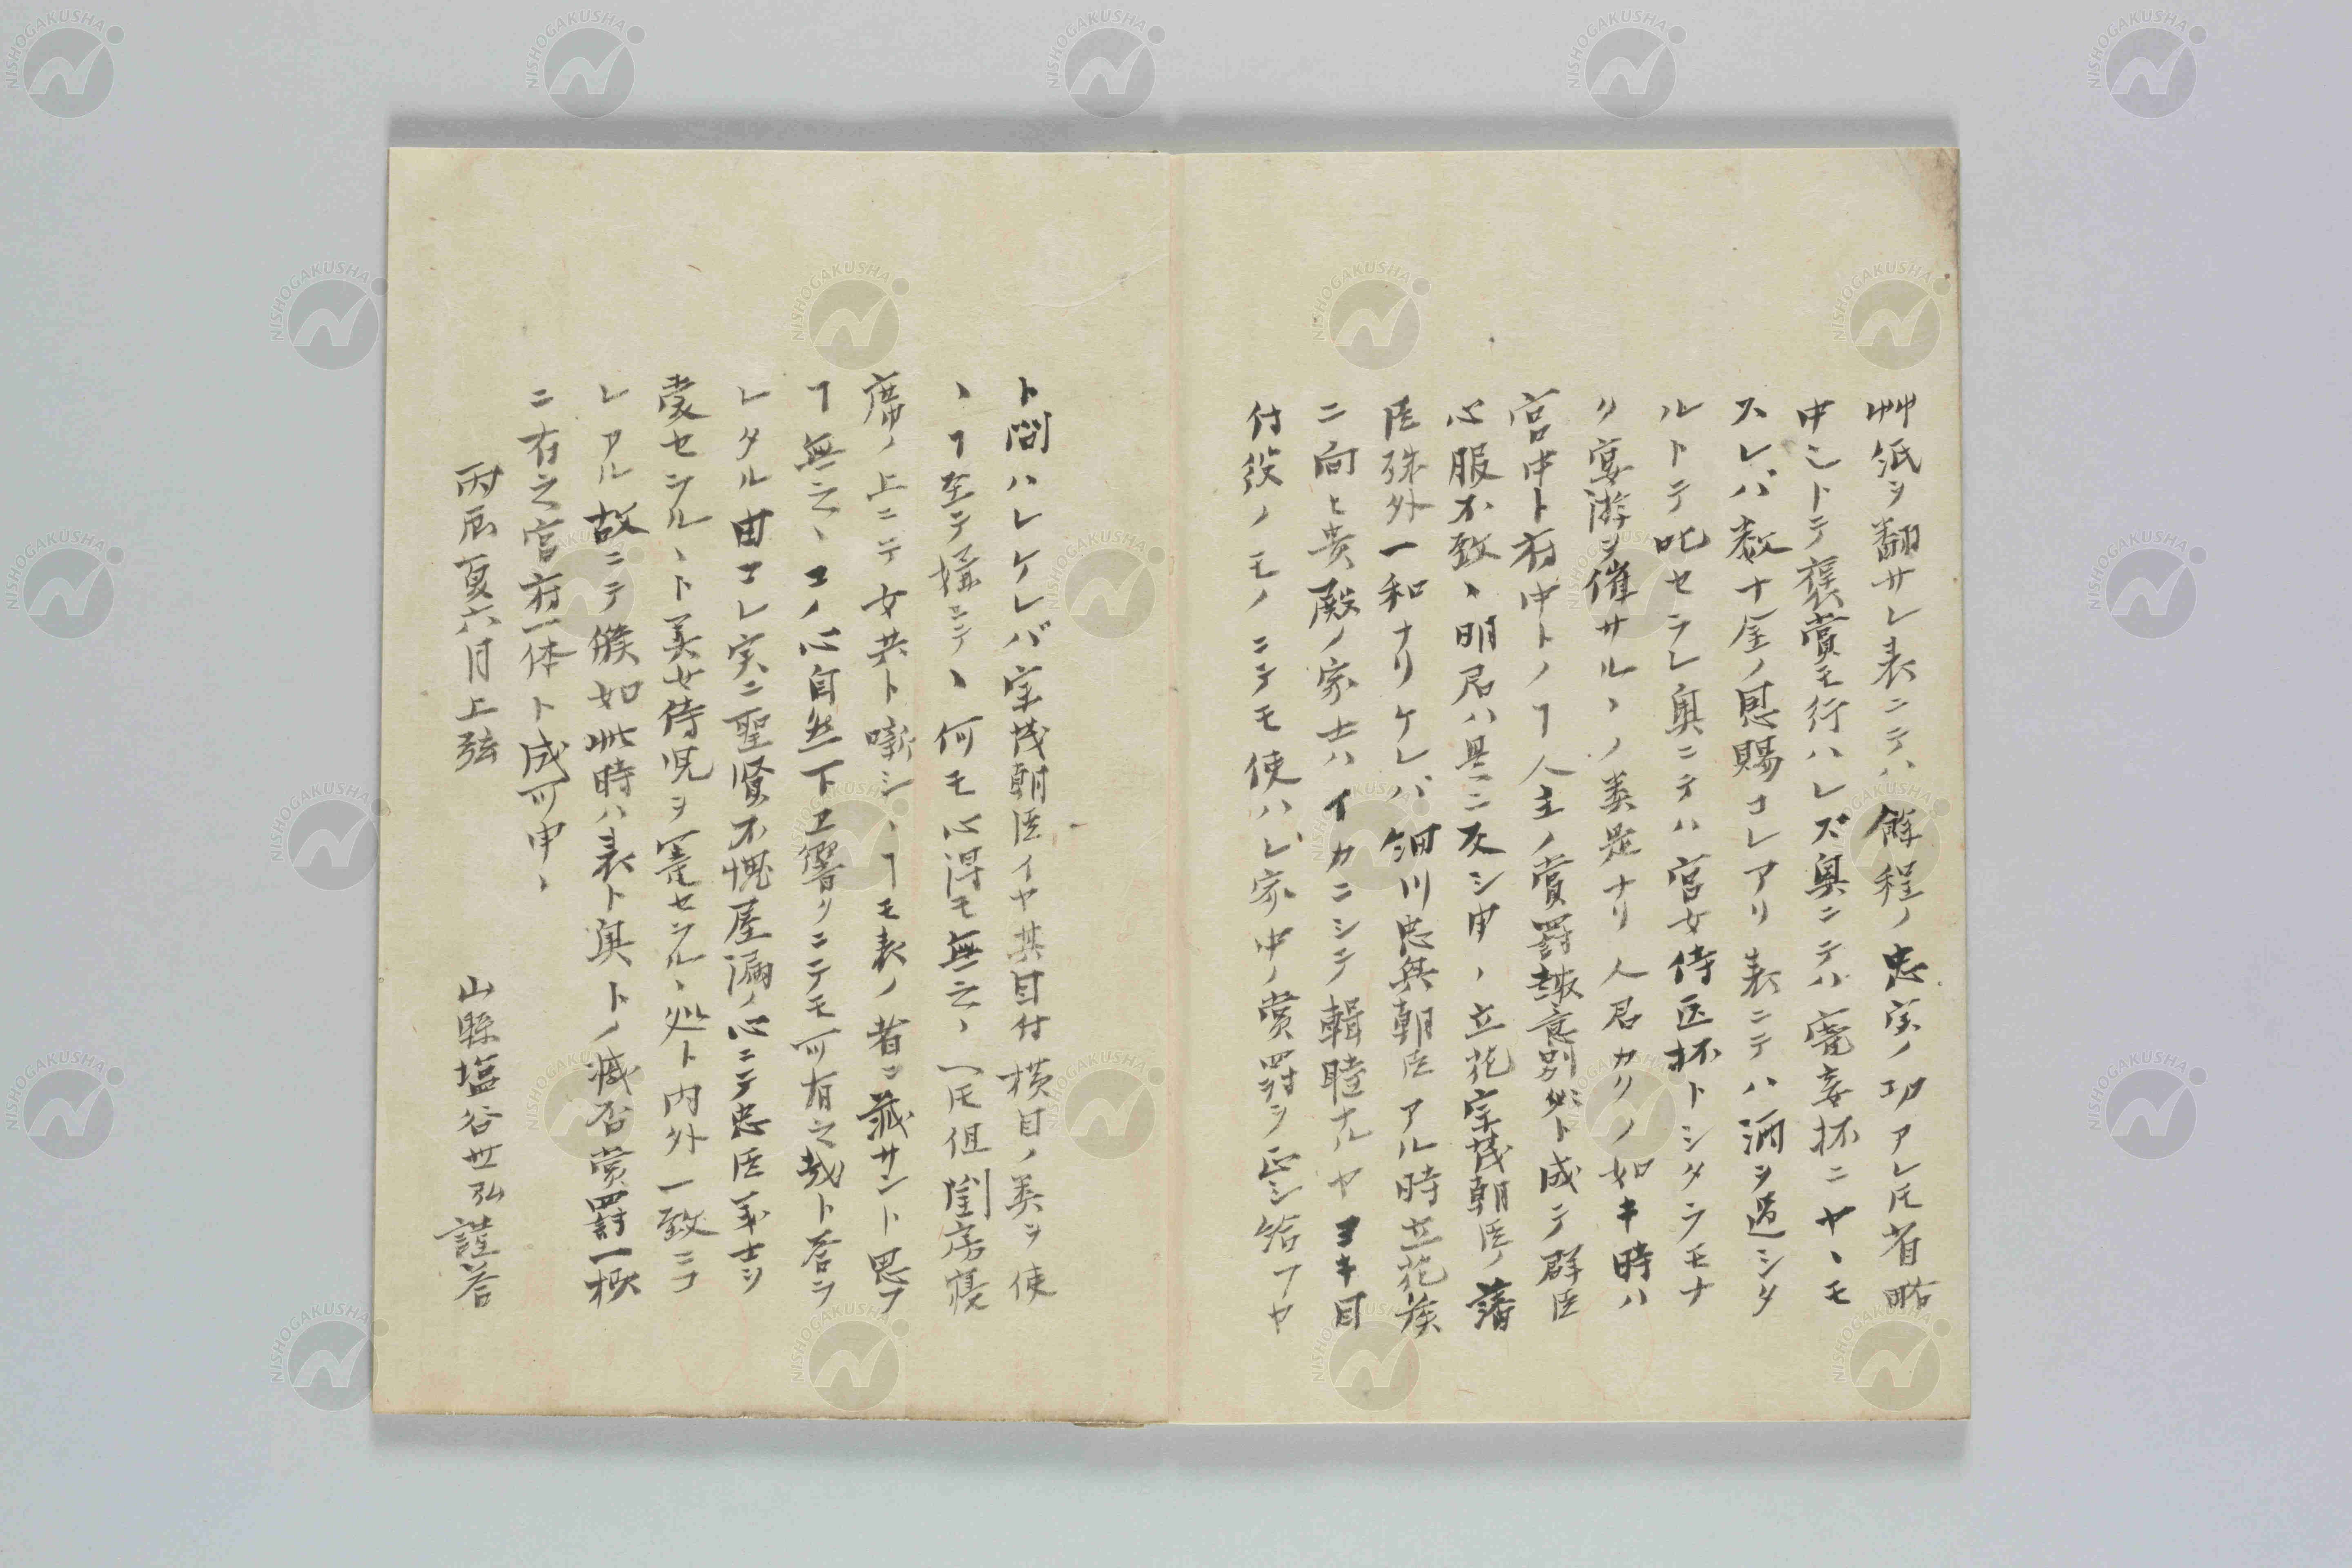 艸紙ヲ翻サレ表ニテハ餘程ノ忠実ノ功アレ𪜈省略
申シトテ褒賞モ行ハレズ奥ニテハ寵妾抔ニヤヽモ
スレバ数十金ノ恩賜コレアリ表ニテハ酒ヲ過シタ
ルトテ叱セラレ奥ニテハ宮女侍医抔トシタラモナ
ク宴游ヲ催サルヽノ類是ナリ人君カクノ如キ時ハ
宮中ト府中トノヿ人主ノ賞罸趣意別々ト成テ群臣
心服不致、明君ハ是ニ反シ申、立花宗茂朝臣ノ藩
臣殊外一和ナリケレバ細川忠興朝臣アル時立花侯
ニ向ヒ貴殿ノ家士ハイカニシテ輯睦ナルヤヨキ目
付役ノモノニテモ使ハレ家中ノ賞罸ヲ正シ給フヤ
ト問ハレケレバ宗茂朝臣イヤ其目付横目ノ類ヲ使
、ヿ至テ嫌ニテ、何モ心得モ無之、𪜈但閨房寝
席ノ上ニテ女共ト噺シ、ヿモ表ノ者ニ蔵サント思フ
ヿ無之、コノ心自然下エ響クニテモ可有之哉ト答ラ
レタル由コレ実ニ聖賢不愧屋漏ノ心ニテ忠臣義士ヲ
賞セラルヽト美女侍児ヲ寵セラルヽ処ト内外一致ニコ
レアル故ニテ候如此時ハ表ト奥トノ臧否賞罸一極
ニ在之宮府一体ト成可申、
丙辰夏六月上弦
山縣塩谷世弘謹荅
NISHOGAKUSHA